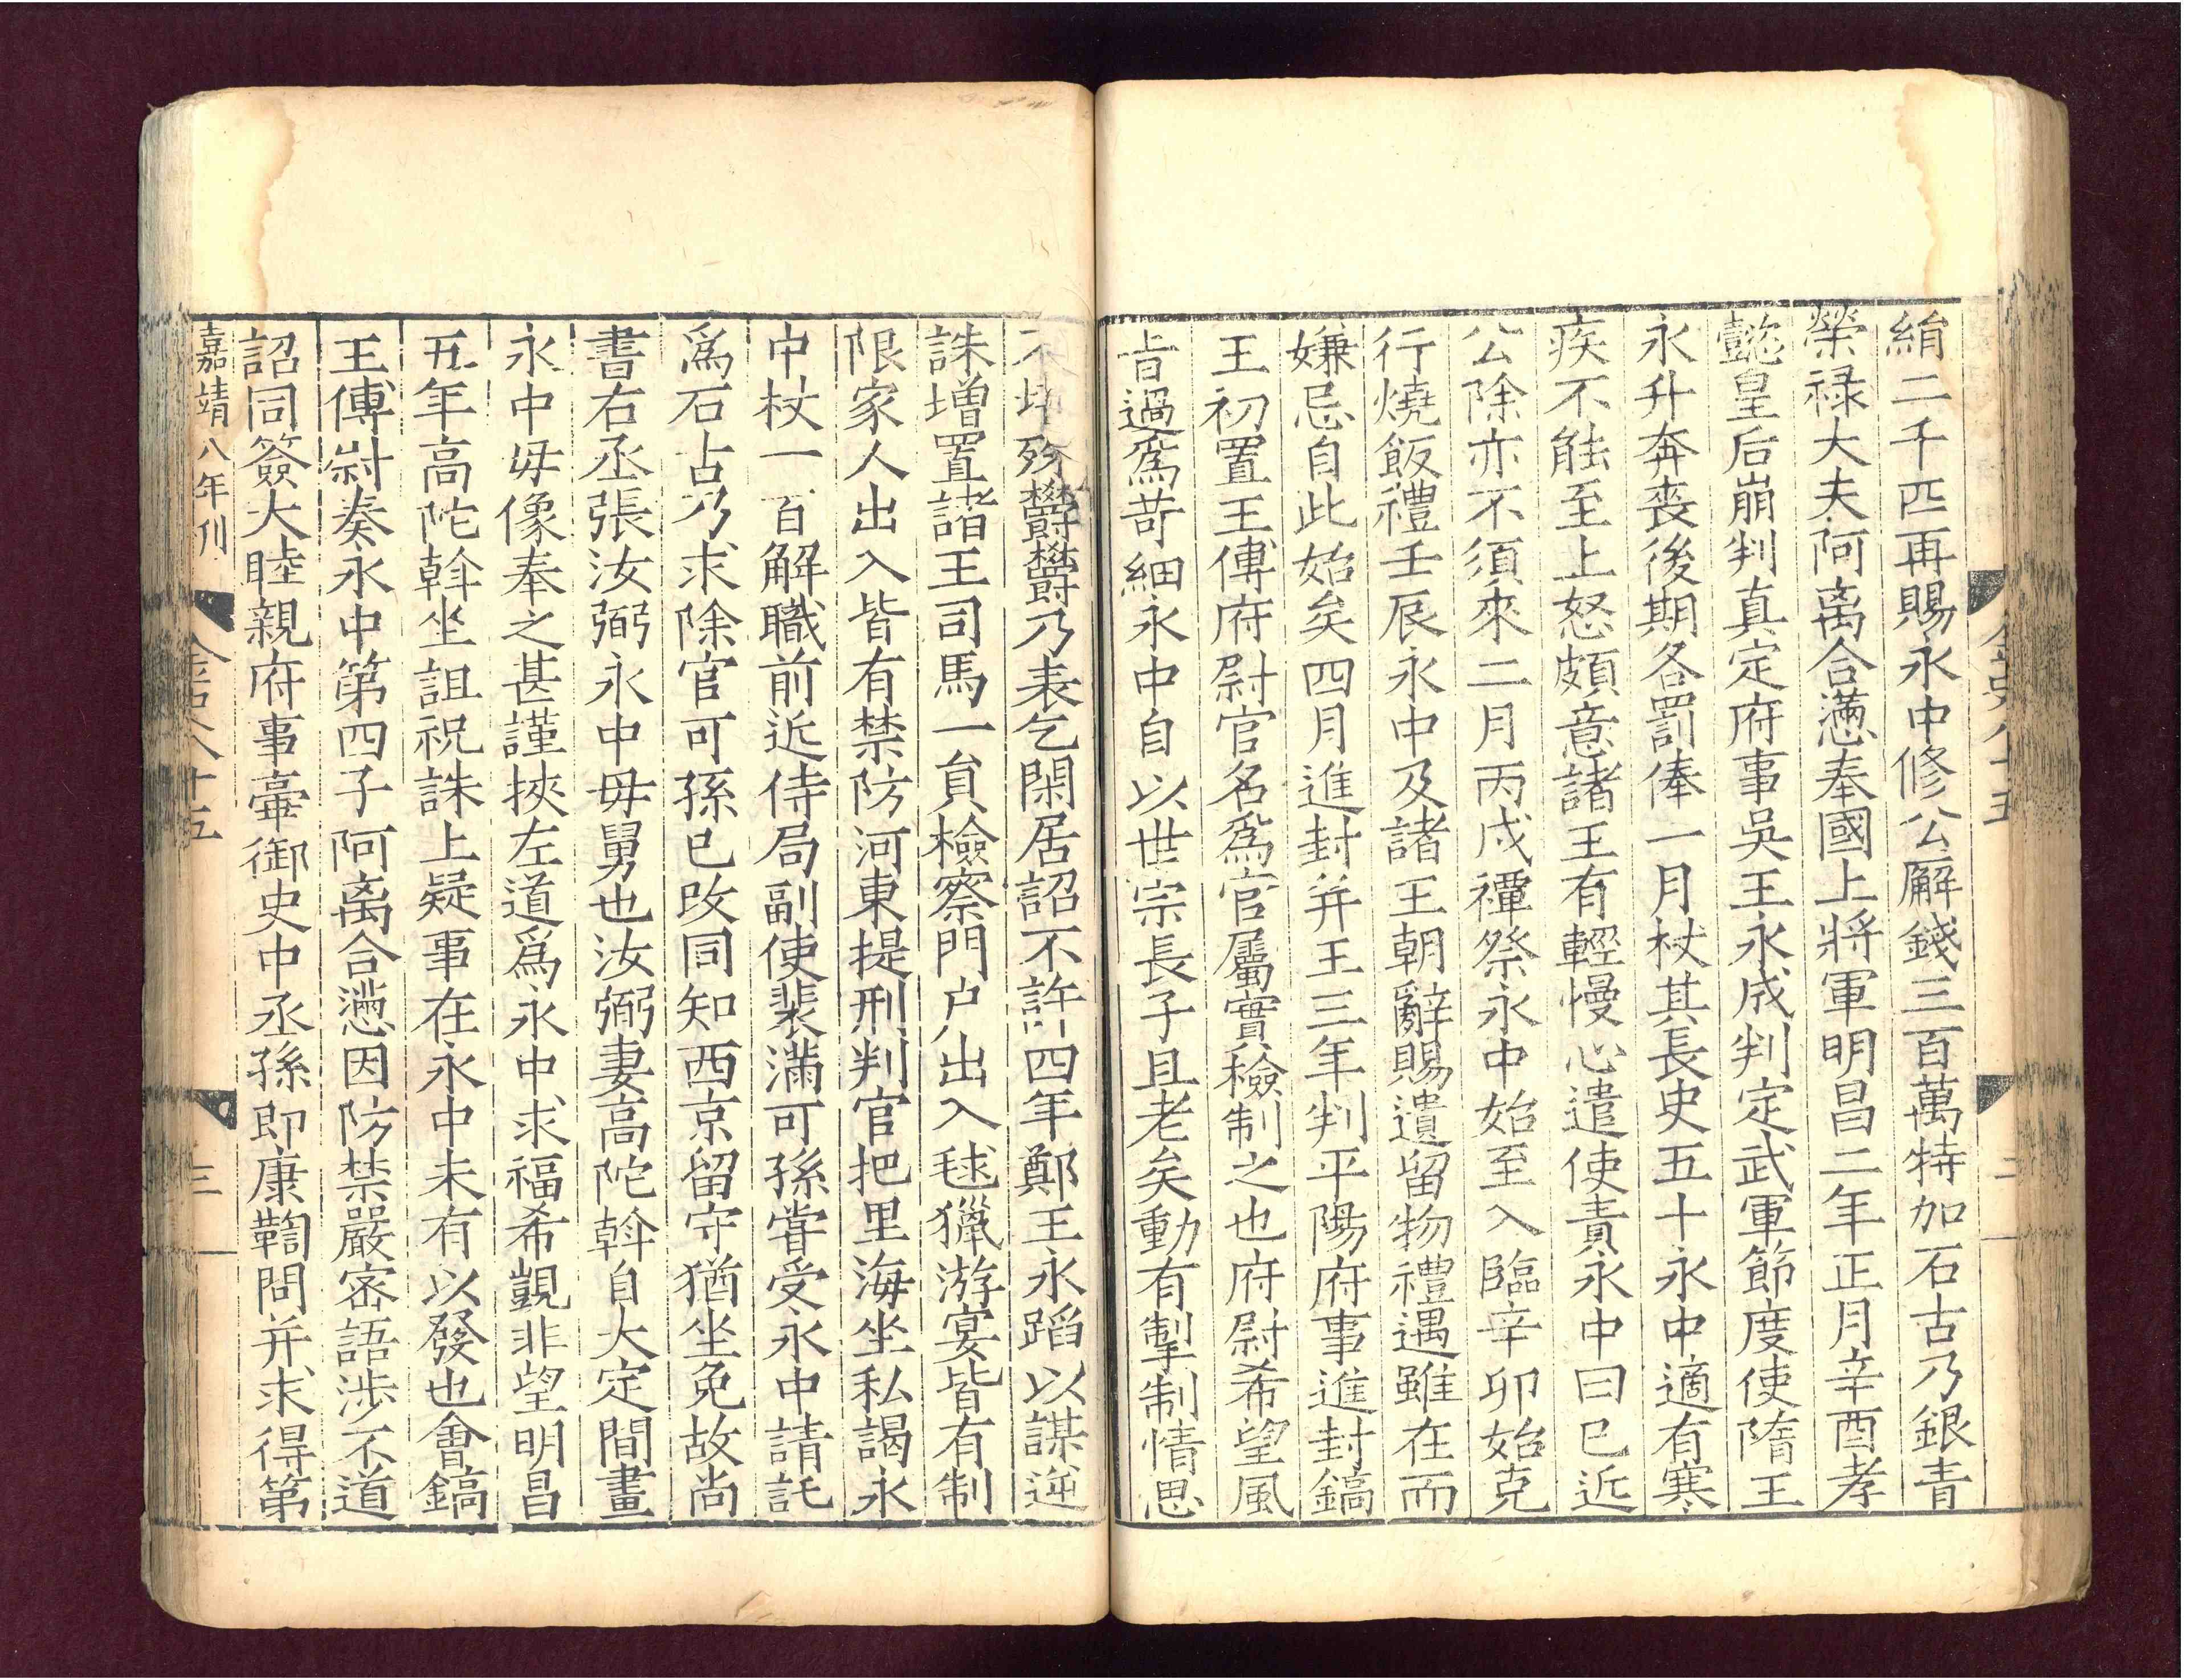 絹二千匹再賜永中修公廨錢三百萬特加石古乃銀青
榮祿大夫阿离合懣奉國上將軍明昌二年正月辛酉孝
懿皇后崩判真定府事吳王永成判定武軍節度使隋王
永升奔喪後期各罰俸一月杖其長史五十永中適有寒
疾不能至上怒頗意諸王有輕慢心遣使責永中曰已近
公除亦不須來二月丙戌禫祭永中始至入臨辛卯始克
行燒飯禮壬辰永中及諸王朝辭賜遺留物禮遇雖在而
嫌忌自此始矣四月進封并王三年判平陽府事進封鎬
王初置王傅府尉官名為官屬實檢制之也府尉希望風
旨過為苛細永中自以世宗長子且老矣動有掣制情思
不 殄鬱鬱乃表乞閑居詔不許四年鄭王永蹈以謀逆
誅增置諸王司馬一員檢察門戶出入毬獵游宴皆有制
限家人出入皆有禁防河東提刑判官把里海坐私謁永
中杖一百解職前近侍局副使裴滿可孫嘗受永中請託
為石古乃求除官可孫已改同知西京留守猶坐免故尚
書右丞張汝弼永中母舅也汝弼妻高陀斡自大定間畫
永中母像奉之甚謹挾左道為永中求福希覬非望明昌
五年高陀斡坐詛祝誅上疑事在永中未有以發也會鎬
王傅尉奏永中第四子阿离合懣因防禁嚴密語涉不道
詔同簽大睦親府事䡝御史中丞孫即康鞫問并求得第
嘉靖八年刊
金史八十五
三
金史八十五
二